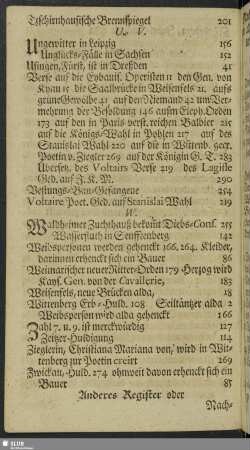 Tschirnhausische Brennspiegel 201
U. V.
Ungewitter in Leipzig 156
Unglücks-Fälle in Sachsen 152
Usingen, Fürst, ist in Dreßden 41
Verse auf die Eybauis. Operisten 11 den Gen. von
Kyau 15 die Saalbrücke in Weisenfels 21. aufs
grüne Gewölbe 41 auf den Niemand 42 um Ver-
mehrung der Besoldung 146 auf 173 auf den in Paris verst. reichen Balbier 21
auf die Königs-Wahl in Pohlen 217 auf des
Stanislai Wahl 220 auf die in Wittenb. gecr.
Poetin v. Ziegler 269 auf der Königin G. T. 283
Übersetz. des Voltairs Verse 219 des
Ged. auf J. K. M. 290
Vestungs-Bau-Gefangene 254
Voltaire Poet. Ged. auf Stanislai Wahl 219
W.
Waldheimer Zuchthauß bekömt Diebs-Cons. 255
Wasserfluth in Senfftenberg 142
Weibspersonen werden gehenckt 166. 264. Kleider,
darinnen erhenckt sich ein Bauer 86
Weimarischer neuer Ritter-Orden 179 Herzog wird
Kays. Gen. von der Cavallerie, 183
Weisenfels, neue Brücken alda, 18
Wittenberg Erb-Huld. 108 Seiltäntzer alda 2
Weibsperson wird alda gehenckt 166
Zahl 7. u. 9. ist merckwürdig 127
Zeitzer-Huldigung 114
Zieglerin, Christiana Mariana von, wird in Wit-
tenberg zur Poetin creirt 269
Zwickau, Huld. 274 ohnweit davon erhenckt sich ein
Bauer 85
Anderes Register oder
Nach-
SLUB